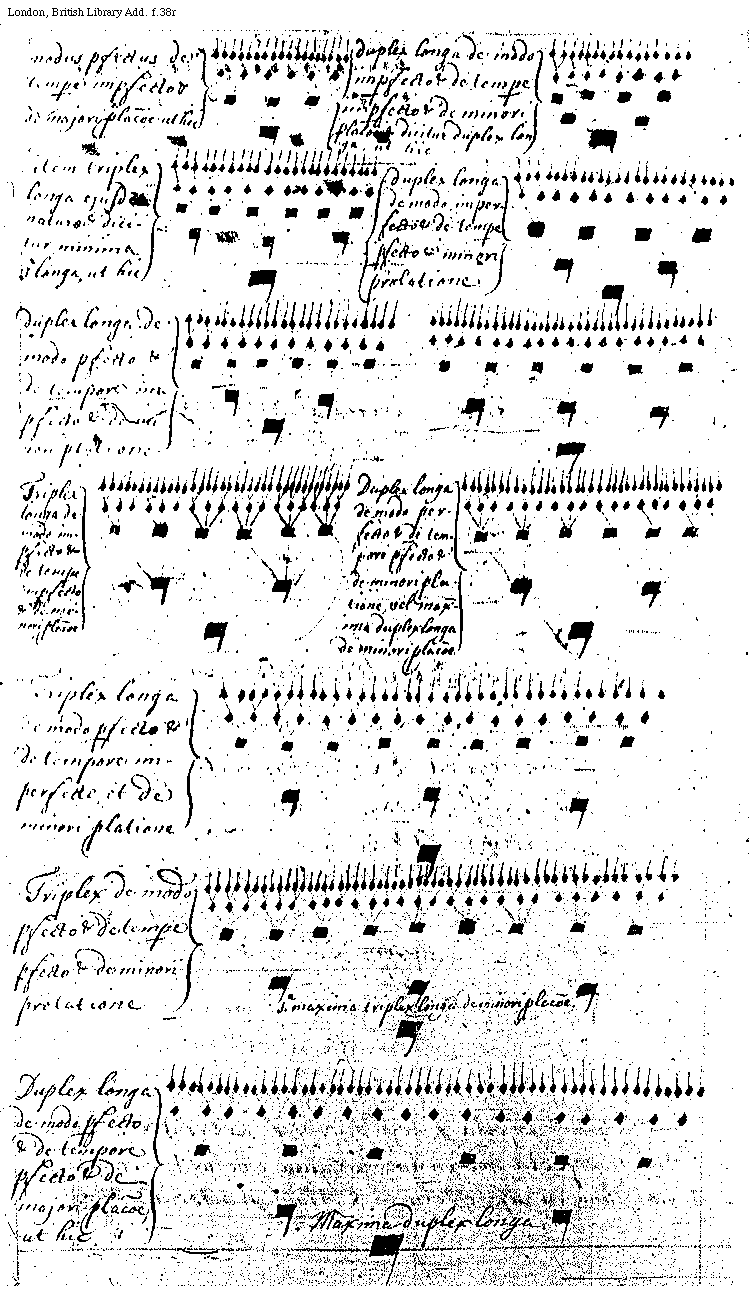 London, British Library Add. f.38r
modus pfectus de
tempe impfecto &
de majori placõe ut hic
duplex longa de modo
impfecto & de tempe
impfecto & de minori
placõe dicitur duplex lon
ga ut hic
item triplex
longa ejusdẽ
naturæ dici-
tur minima
longa, ut hic
duplex longa
de modo imper
fecto & de tempe
pfecto & minori
prolatione
duplex longa de
modo pfecto &
de tempore im-
pfecto & de mi
nori platione
Triplex
longa de
modo im-
pfecto &
de tempe
impfecto
& de mi-
nori placõe
Duplex longa
de modo per-
fecto & de tem-
pore pfecto &
de minori pla-
tione, vel maxi-
ma duplex longa
de minori placõe
Triplex longa
de modo pfecto &
de tempore im-
perfecte, et de
minori platione
Triplex de modo
pfecto & de tempe
pfecto & de minori
prolatione
maxima triplex longa de minori placõe
Duplex longa
de modo pfecto,
& de tempore
pfecto & de
majori placõe,
ut hic
Maxima duplex longa